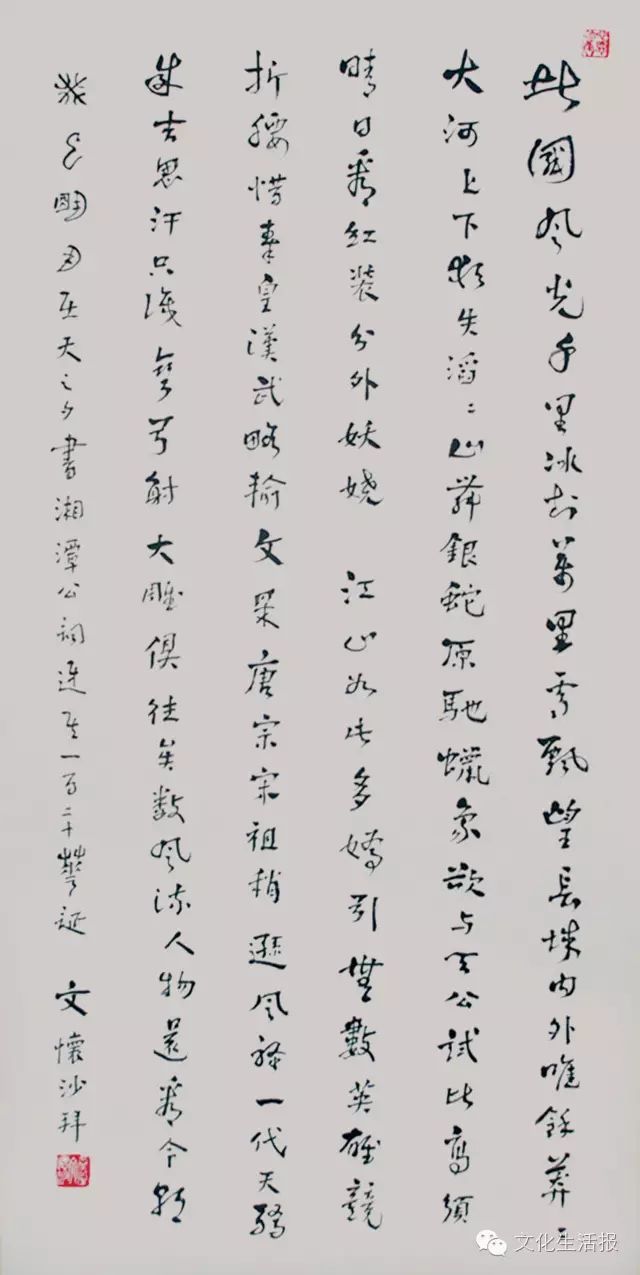 北國風光千里冰封萬里雪飄望長城內外唯餘莽〻
大河上下頓失滔〻山舞銀蛇原馳蠟象欲與天公試比高須
晴日看紅裝分外妖嬈 江山如此多嬌引無數英雄競
折腰惜秦皇漢武略輸文采唐宗宋祖稍遜風騷一代天驕
成吉思汗只識彎弓射大雕俱往矣數風流人物還看今朝
癸巳明月在天之夕書湘潭公詞逢其一百二十華誕 文懷沙拜
文化生活报